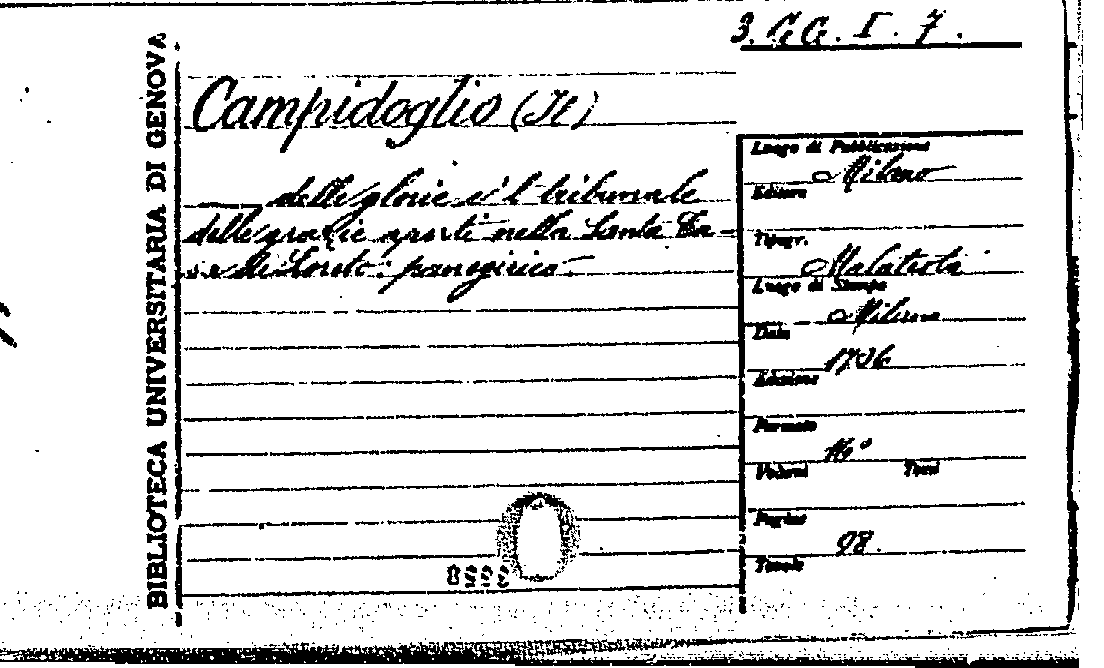 3. GG. I. 7.
BIBLIOTECA UNIVERSITARIA DI GENOVA
Campidoglio (Il)
delle glorie e'l tribunale
delle grazie aperti nella Santa Ca-
sa di Loreto: panegirico.
Luogo di Pubblicazione
Milano
Editore
Tipogr.
Malatesta
Luogo di Stampa
Milano
Data
1706
Edizione
Formato
16°
Volumi Tomi
Pagine
98.
Tavole